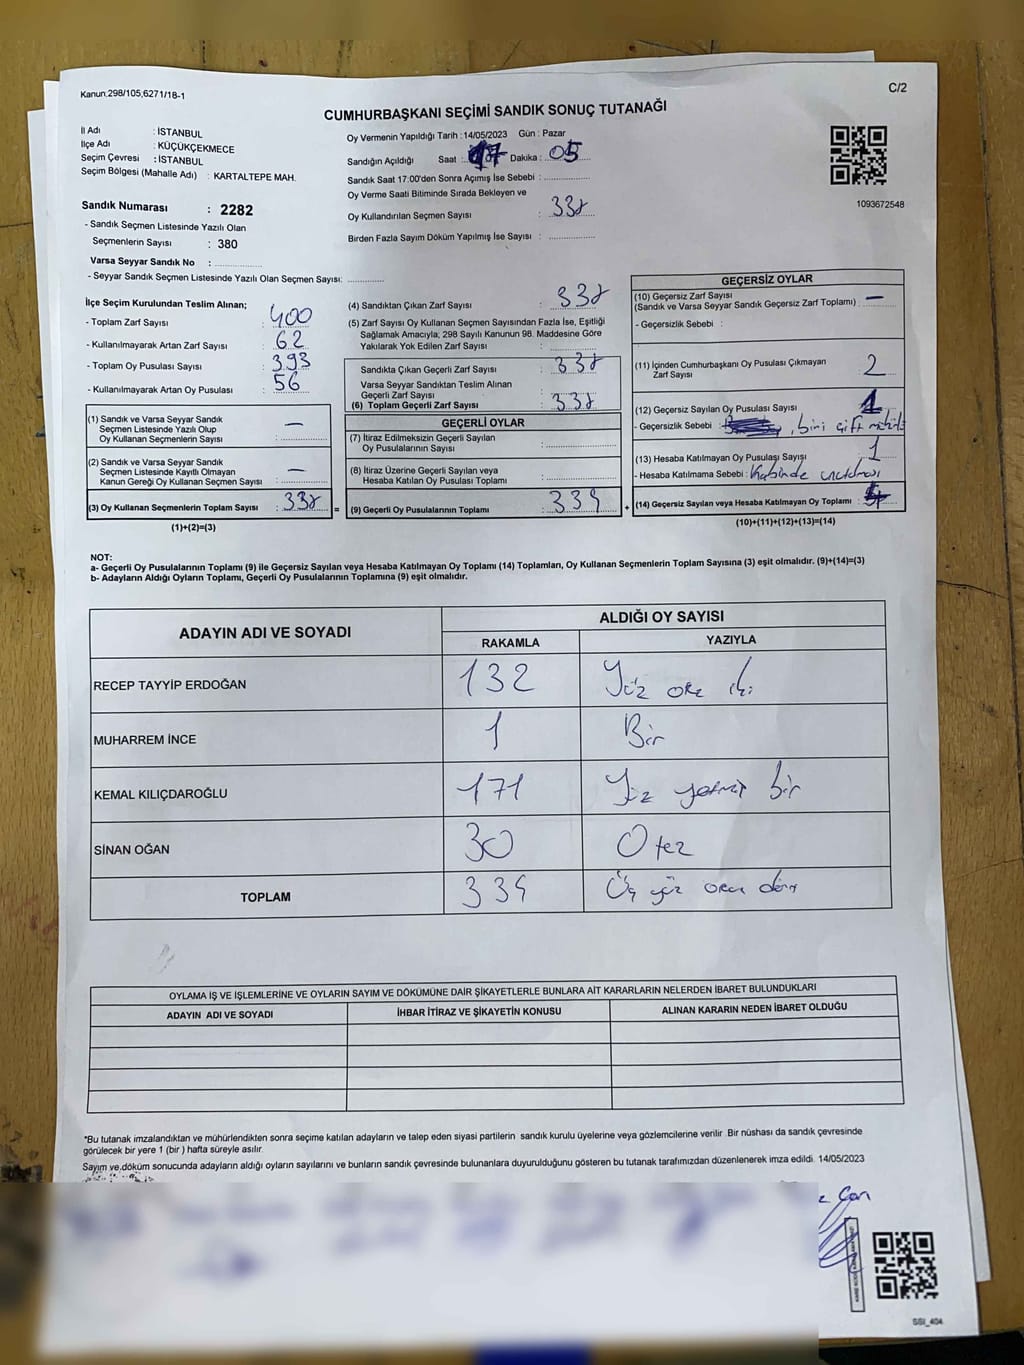 Kanun.298/105,6271/18-1
C/2
CUMHURBAŞKANI SEÇİMİ SANDIK SONUÇ TUTANAĞI
İl Adı : İSTANBUL
İlçe Adı : KÜÇÜKÇEKMECE
Seçim Çevresi : İSTANBUL
Seçim Bölgesi (Mahalle Adı) : KARTALTEPE MAH.
Sandık Numarası : 2282
- Sandık Seçmen Listesinde Yazılı Olan
Seçmenlerin Sayısı : 380
Varsa Seyyar Sandık No :
- Seyyar Sandık Seçmen Listesinde Yazılı Olan Seçmen Sayısı:
Oy Vermenin Yapıldığı Tarih : 14/05/2023 Gün : Pazar
Sandığın Açıldığı Saat : 17 Dakika : 05
Sandık Saat 17:00'den Sonra Açımış İse Sebebi :
Oy Verme Saati Bitiminde Sırada Bekleyen ve
Oy Kullandırılan Seçmen Sayısı : 338
Birden Fazla Sayım Döküm Yapılmış İse Sayısı :
1093672548
İlçe Seçim Kurulundan Teslim Alınan;
- Toplam Zarf Sayısı : 400
- Kullanılmayarak Artan Zarf Sayısı : 62
- Toplam Oy Pusulası Sayısı : 393
- Kullanılmayarak Artan Oy Pusulası : 56
(1) Sandık ve Varsa Seyyar Sandık
Seçmen Listesinde Yazılı Olup
Oy Kullanan Seçmenlerin Sayısı : —
(2) Sandık ve Varsa Seyyar Sandık
Seçmen Listesinde Kayıtlı Olmayan
Kanun Gereği Oy Kullanan Seçmen Sayısı : —
(3) Oy Kullanan Seçmenlerin Toplam Sayısı : 338 =
(1)+(2)=(3)
(4) Sandıktan Çıkan Zarf Sayısı : 338
(5) Zarf Sayısı Oy Kullanan Seçmen Sayısından Fazla İse, Eşitliği
Sağlamak Amacıyla, 298 Sayılı Kanunun 98. Maddesine Göre
Yakılarak Yok Edilen Zarf Sayısı :
Sandıkta Çıkan Geçerli Zarf Sayısı : 338
Varsa Seyyar Sandıktan Teslim Alınan
Geçerli Zarf Sayısı :
(6) Toplam Geçerli Zarf Sayısı : 338
GEÇERLİ OYLAR
(7) İtiraz Edilmeksizin Geçerli Sayılan
Oy Pusulalarının Sayısı :
(8) İtiraz Üzerine Geçerli Sayılan veya
Hesaba Katılan Oy Pusulası Toplamı :
(9) Geçerli Oy Pusulalarının Toplamı : 334 +
GEÇERSİZ OYLAR
(10) Geçersiz Zarf Sayısı
(Sandık ve Varsa Seyyar Sandık Geçersiz Zarf Toplamı) : —
- Geçersizlik Sebebi :
(11) İçinden Cumhurbaşkanı Oy Pusulası Çıkmayan
Zarf Sayısı 2
(12) Geçersiz Sayılan Oy Pusulası Sayısı : 1
- Geçersizlik Sebebi : , biri çift mühür
(13) Hesaba Katılmayan Oy Pusulası Sayısı : 1
- Hesaba Katılmama Sebebi : Kabinde unutması
(14) Geçersiz Sayılan veya Hesaba Katılmayan Oy Toplamı : 4
(10)+(11)+(12)+(13)=(14)
NOT:
a- Geçerli Oy Pusulalarının Toplamı (9) ile Geçersiz Sayılan veya Hesaba Katılmayan Oy Toplamı (14) Toplamları, Oy Kullanan Seçmenlerin Toplam Sayısına (3) eşit olmalıdır. (9)+(14)=(3)
b- Adayların Aldığı Oyların Toplamı, Geçerli Oy Pusulalarının Toplamına (9) eşit olmalıdır.
ADAYIN ADI VE SOYADI
ALDIĞI OY SAYISI
RAKAMLA YAZIYLA
RECEP TAYYİP ERDOĞAN 132 Yüz otuz iki
MUHARREM İNCE 1 Bir
KEMAL KILIÇDAROĞLU 171 Yüz yetmiş bir
SİNAN OĞAN 30 Otuz
TOPLAM 334 Üç yüz otuz dört
OYLAMA İŞ VE İŞLEMLERİNE VE OYLARIN SAYIM VE DÖKÜMÜNE DAİR ŞİKAYETLERLE BUNLARA AİT KARARLARIN NELERDEN İBARET BULUNDUKLARI
ADAYIN ADI VE SOYADI İHBAR İTİRAZ VE ŞİKAYETİN KONUSU ALINAN KARARIN NEDEN İBARET OLDUĞU
*Bu tutanak imzalandıktan ve mühürlendikten sonra seçime katılan adayların ve talep eden siyasi partilerin sandık kurulu üyelerine veya gözlemcilerine verilir. Bir nüshası da sandık çevresinde
görülecek bir yere 1 (bir) hafta süreyle asılır.
Sayım ve döküm sonucunda adayların aldığı oyların sayılarını ve bunların sandık çevresinde bulunanlara duyurulduğunu gösteren bu tutanak tarafımızdan düzenlenerek imza edildi. 14/05/2023
SSI_404